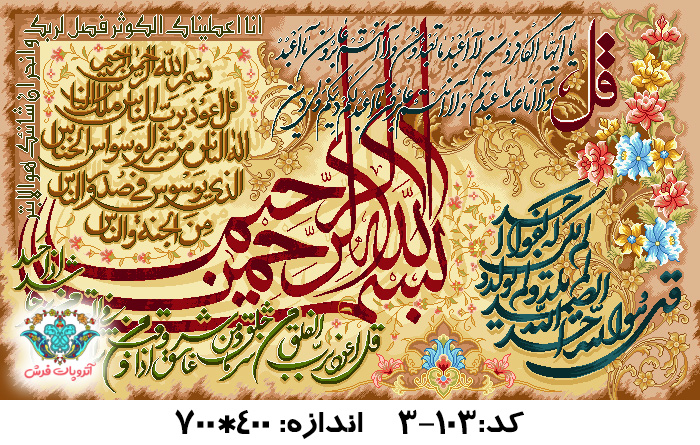 انا اعطیناک الکوثر فصل لربک
وانحر ان شانئک هو الابتر
قل یا أیها الکافرون لا أعبد ما تعبدون ولا أنتم عابدون ما أعبد
ولا أنا عابد ما عبدتم ولا أنتم عابدون ما أعبد لکم دینکم ولی دین
بسم الله الرحمن الرحیم
قل اعوذ برب الناس ملک الناس
اله الناس من شر الوسواس الخناس
الذی یوسوس فی صدور الناس
من الجنة والناس
بسم الله الرحمن الرحیم
قل هو الله احد
الله الصمد
لم یلد ولم یولد
ولم یکن له کفوا احد
قل اعوذ برب الفلق من شر ما خلق ومن شر غاسق اذا وقب
حاسد اذا حسد
آنروپات فرش
کد:۱۰۳-۳ اندازه: ۴۰۰*۷۰۰